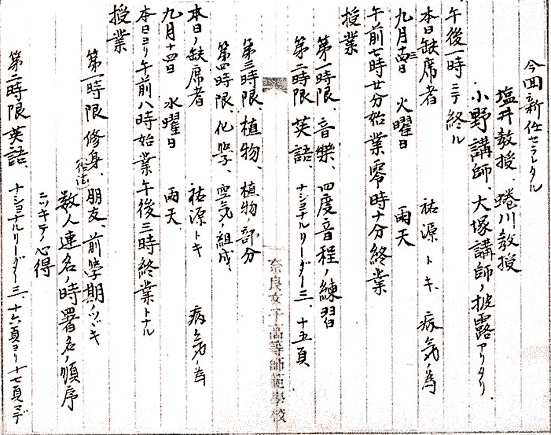 今回新任セラレタル
塩井教授、蜷川教授
小野講師、大塚講師ノ披露アリタリ
午後一時ニテ終ル
本日ノ缺席者　祐源トキ、病気ノ為
九月十三日　火曜日　雨天
午前七時廿分始業零時十分終業
授業
第一時限　音樂、四度音程ノ練習
第二時限　英語、ナショナルリーダー三　十五頁
奈良女子高等師範學校
第三時限　植物、植物ノ部分
第四時限、化學、空気ノ組成、
本日ノ缺席者　祐源トキ　病気ノ為
九月十四日　水曜日　雨天
本日ヨリ午前八時始業午後三時終業トナル
授業
第一時限　修身、朋友、前學期ノツヅキ
作法
数人連名ノ時署名ノ順序
ニツキテノ心得
第二時限　英語、ナショナルリーダー三、十六頁ヨリ十七頁マデ